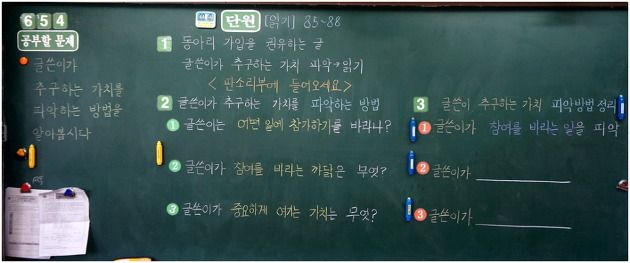 6 5 4
공부할 문제
글쓴이가
추구하는 가치를
파악하는 방법을
알아봅시다
단원 [읽기] 85~88
1 동아리 가입을 권유하는 글
글쓴이가 추구하는 가치 파악→읽기
< 판소리부에 들어오세요>
2 글쓴이가 추구하는 가치를 파악하는 방법
1 글쓴이는 어떤 일에 참가하기를 바라나?
2 글쓴이가 참여를 바라는 까닭은 무엇?
3 글쓴이가 중요하게 여기는 가치는 무엇?
3 글쓴이 추구하는 가치 파악방법 정리
1 글쓴이가 참여를 바라는 일을 파악
2 글쓴이가
3 글쓴이가